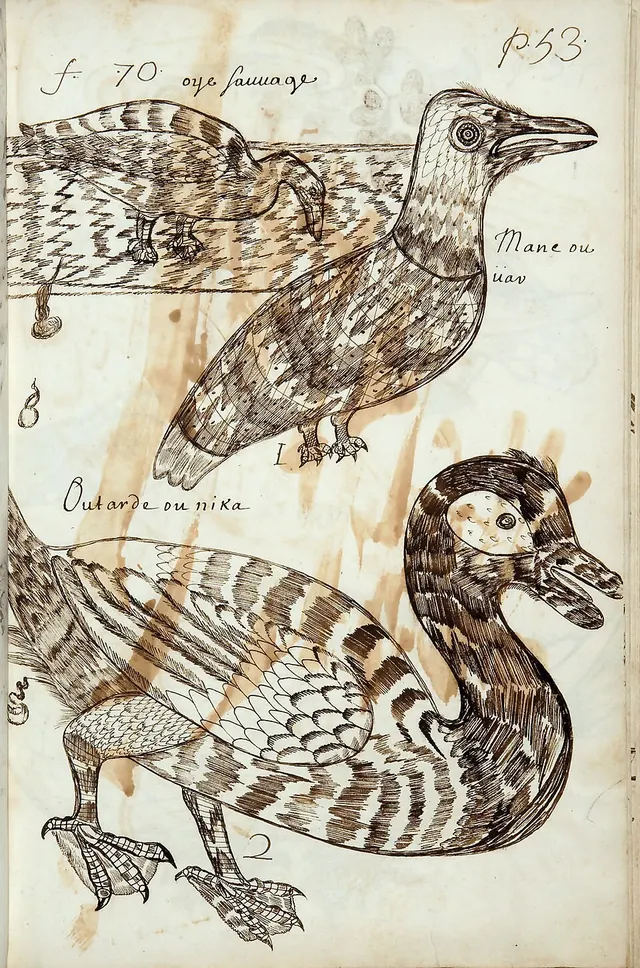 p. 53.
f. 70. oye sauuage
Mane ou
uar
1
Outarde ou nika
2